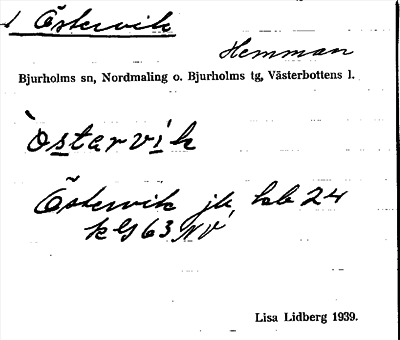 Östervik
Hemman
Bjurholms sn, Nordmaling o. Bjurholms tg, Västerbottens l.
östarvik
Östervik jk, hb 24
k G 63 NV
Lisa Lidberg 1939.